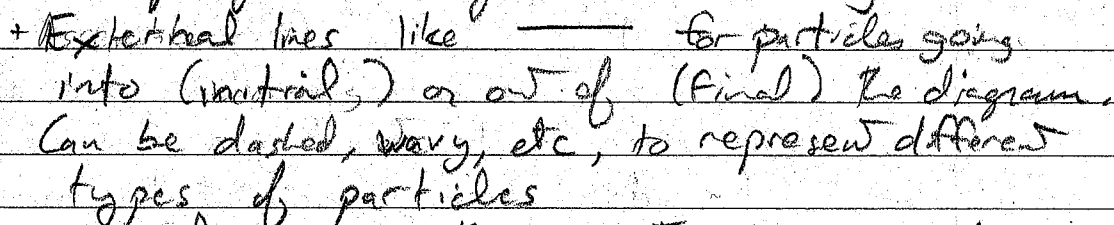 + External lines like —— for particles going
into (initial) or out of (final) the diagram.
Can be dashed, wavy, etc, to represent different
types of particles